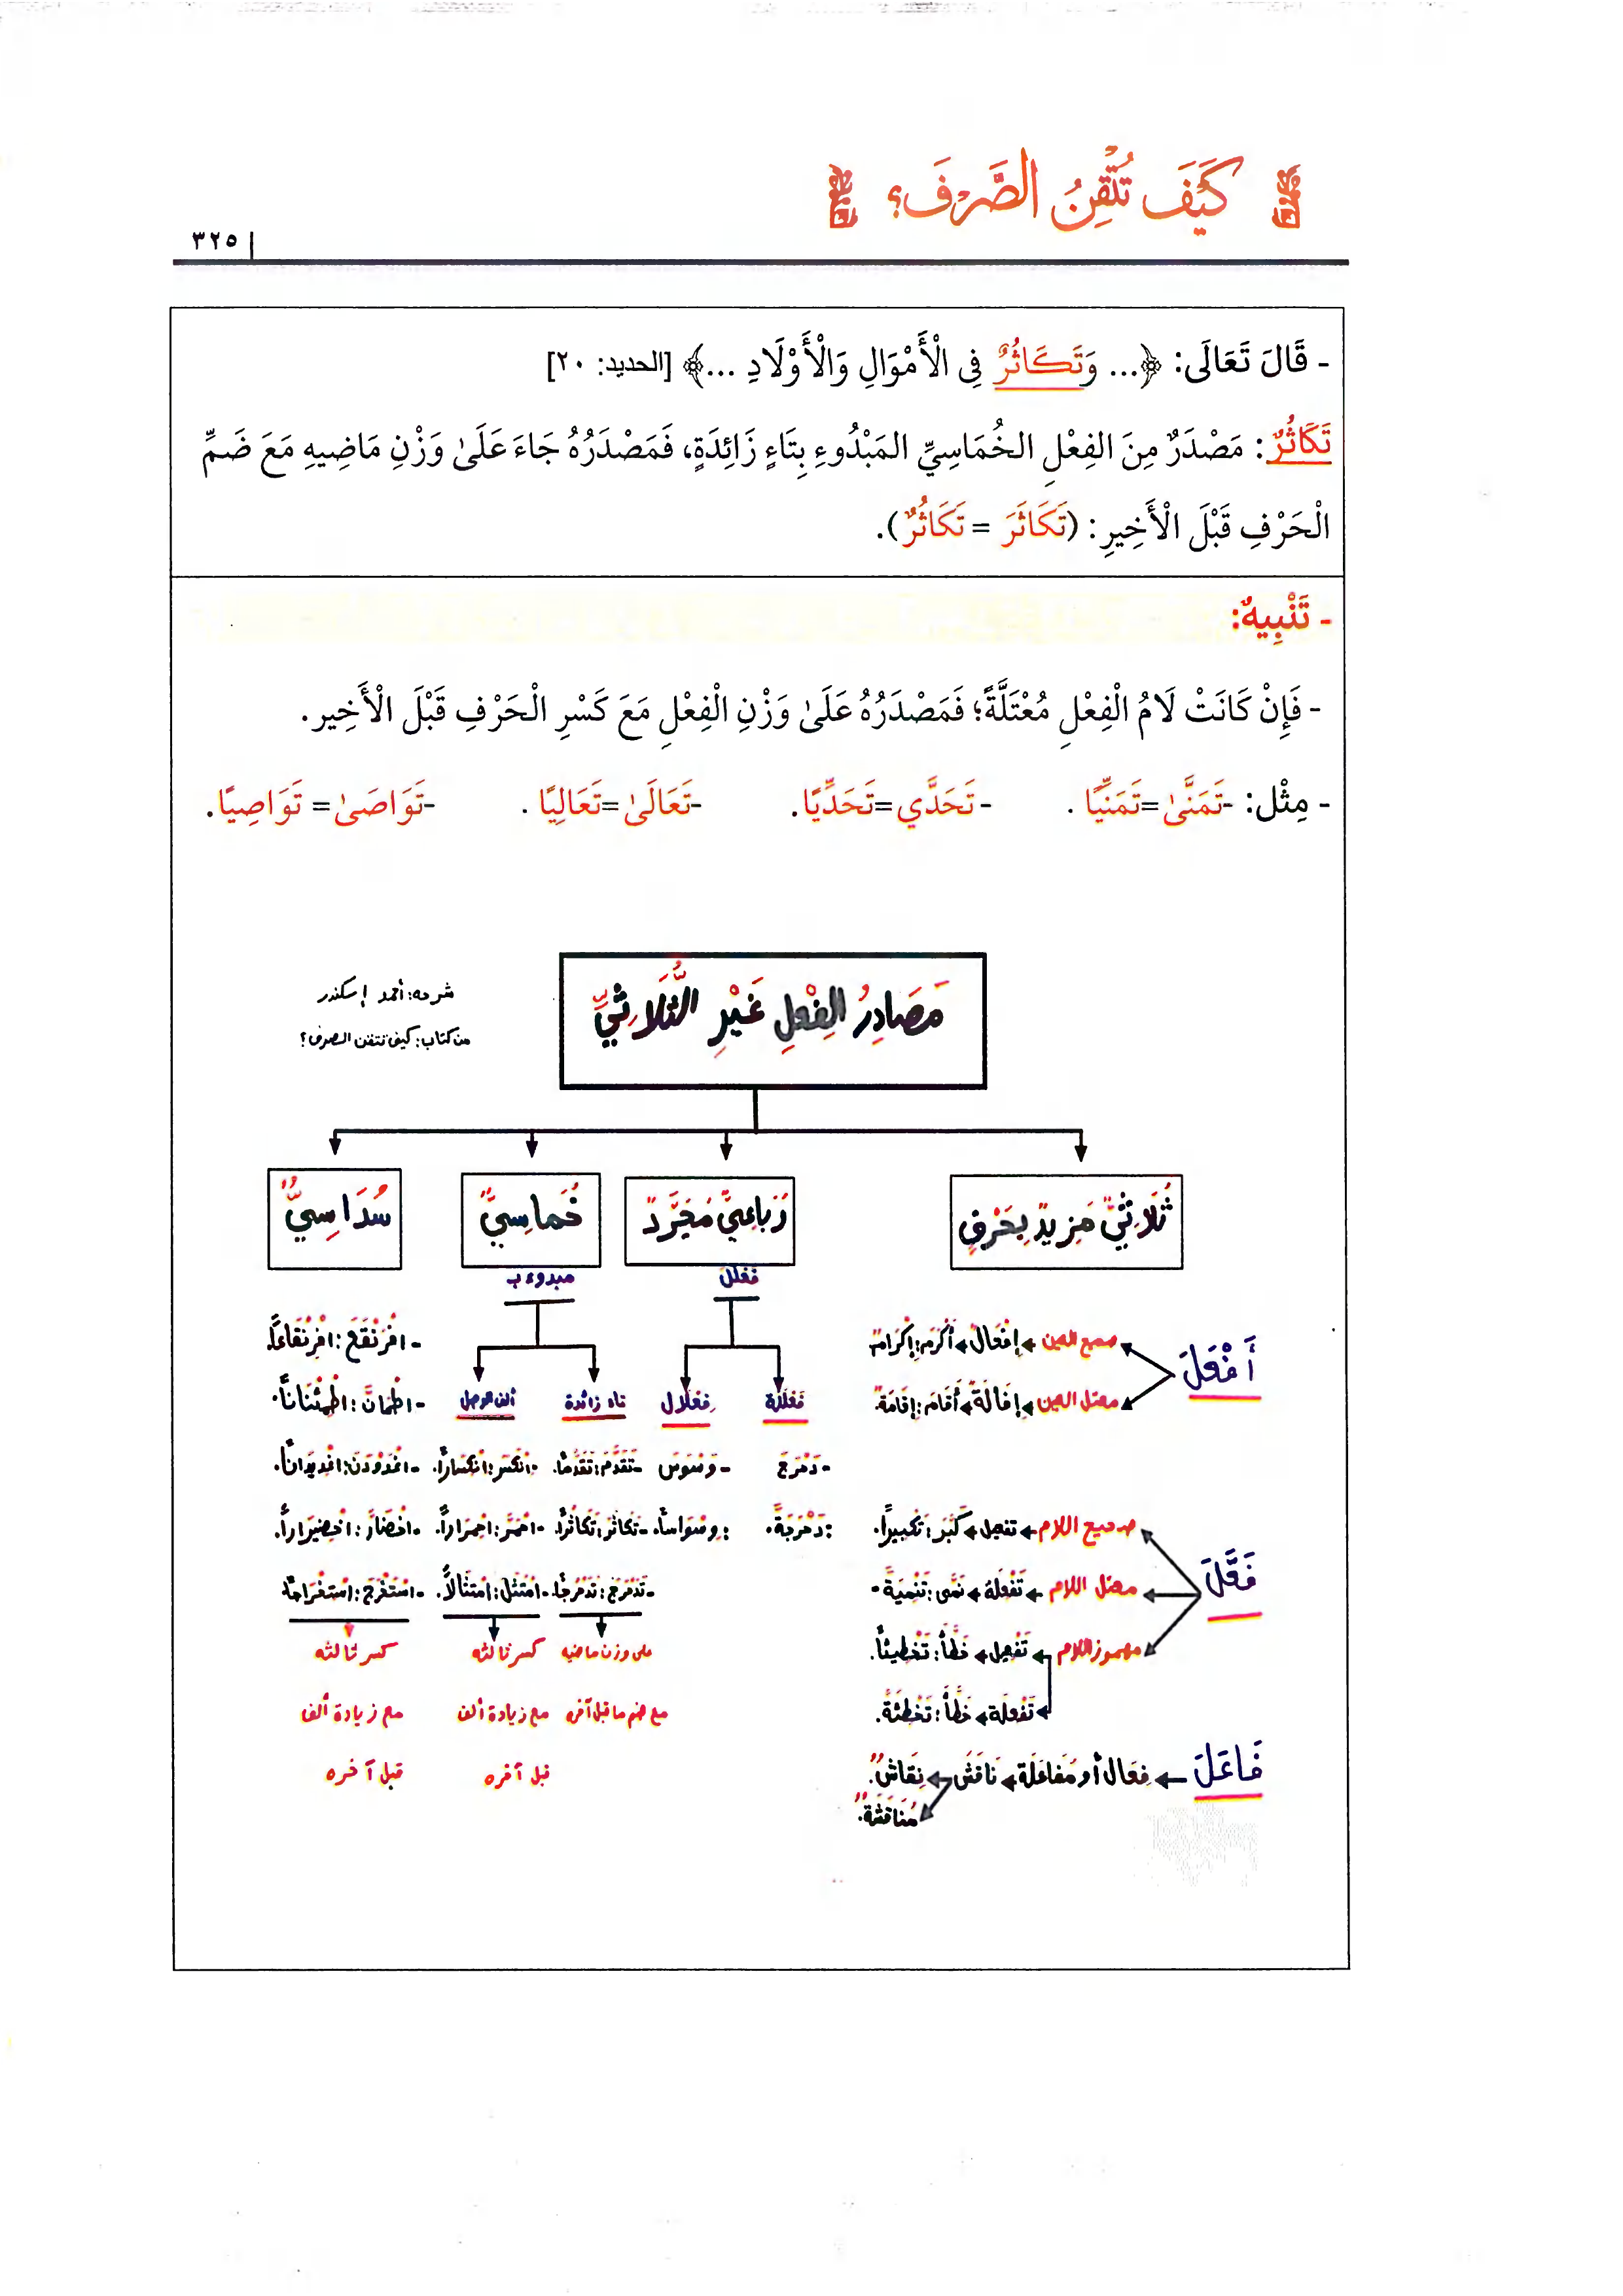 كَيْفَ تُتْقِنُ الصَّرْفَ؟
٣٢٥
- قَالَ تَعَالَى: ﴿... وَتَكَاثُرٌ فِي الْأَمْوَالِ وَالْأَوْلَادِ ...﴾ [الحديد: ٢٠]
تَكَاثُرٌ: مَصْدَرٌ مِنَ الفِعْلِ الخُمَاسِيِّ المَبْدُوءِ بِتَاءٍ زَائِدَةٍ، فَمَصْدَرُهُ جَاءَ عَلَىٰ وَزْنِ مَاضِيهِ مَعَ ضَمِّ
الْحَرْفِ قَبْلَ الْأَخِيرِ: (تَكَاثَرَ = تَكَاثُرٌ).
- تَنْبِيهٌ:
- فَإِنْ كَانَتْ لَامُ الْفِعْلِ مُعْتَلَّةً؛ فَمَصْدَرُهُ عَلَىٰ وَزْنِ الْفِعْلِ مَعَ كَسْرِ الْحَرْفِ قَبْلَ الْأَخِير.
- مِثْل: -تَمَنَّىٰ=تَمَنِّيًا . - تَحَدَّي=تَحَدِّيًا. -تَعَالَىٰ=تَعَالِيًا . -تَوَاصَىٰ= تَوَاصِيًا.
مَصَادِرُ الفِعْلِ غَيْرِ الثُّلَاثِيِّ
شرحه: أحمد إسكندر
من كتاب: كيف تتقن الصرف؟
ثُلَاثِيٌّ مَزِيدٌ بِحَرْفٍ
رُبَاعِيٌّ مُجَرَّدٌ
خُمَاسِيٌّ
سُدَاسِيٌّ
أَفْعَلَ
صحيح العين إِفْعَالٌ أَكْرَمَ: إِكْرَامٌ
معتل العين إِفَالَةٌ أَقَامَ: إِقَامَةٌ.
فَعَّلَ
صحيح اللام تفعيل كَبَّرَ: تَكْبِيرًا.
معتل اللام تَفْعِلَة نَمَّى: تَنْمِيَةً.
مهموز اللام تَفْعِيل خَطَّأَ: تَخْطِيئًا.
تَفْعِلَة خَطَّأَ: تَخْطِئَةً.
فَاعَلَ
فِعَال أو مُفَاعَلَة نَاقَشَ نِقَاشٌ.
مُنَاقَشَةٌ.
فَعْلَلَ
فَعْلَلَة
- دَحْرَجَ
: دَحْرَجَةً.
فِعْلَال
- وَسْوَسَ
: وِسْوَاسًا.
مبدوء ب
تاء زائدة
- تَقَدَّمَ: تَقَدُّمًا.
- تَكَاثَرَ: تَكَاثُرًا.
- تَدَحْرَجَ: تَدَحْرُجًا.
على وزن ماضيه
مع ضم ما قبل آخره
ألف الوصل
- انْكَسَرَ: انْكِسَارًا.
- احْمَرَّ: احْمِرَارًا.
- امْتَثَلَ: امْتِثَالًا.
كسر ثالثه
مع زيادة ألف
قبل آخره
- افْرَنْقَعَ: افْرِنْقَاعًا.
- اطْمَأَنَّ: اطْمِئْنَانًا.
- اغْدَوْدَنَ: اغْدِيدَانًا.
- اخْضَارَّ: اخْضِيرَارًا.
- اسْتَخْرَجَ: اسْتِخْرَاجًا.
كسر ثالثه
مع زيادة ألف
قبل آخره